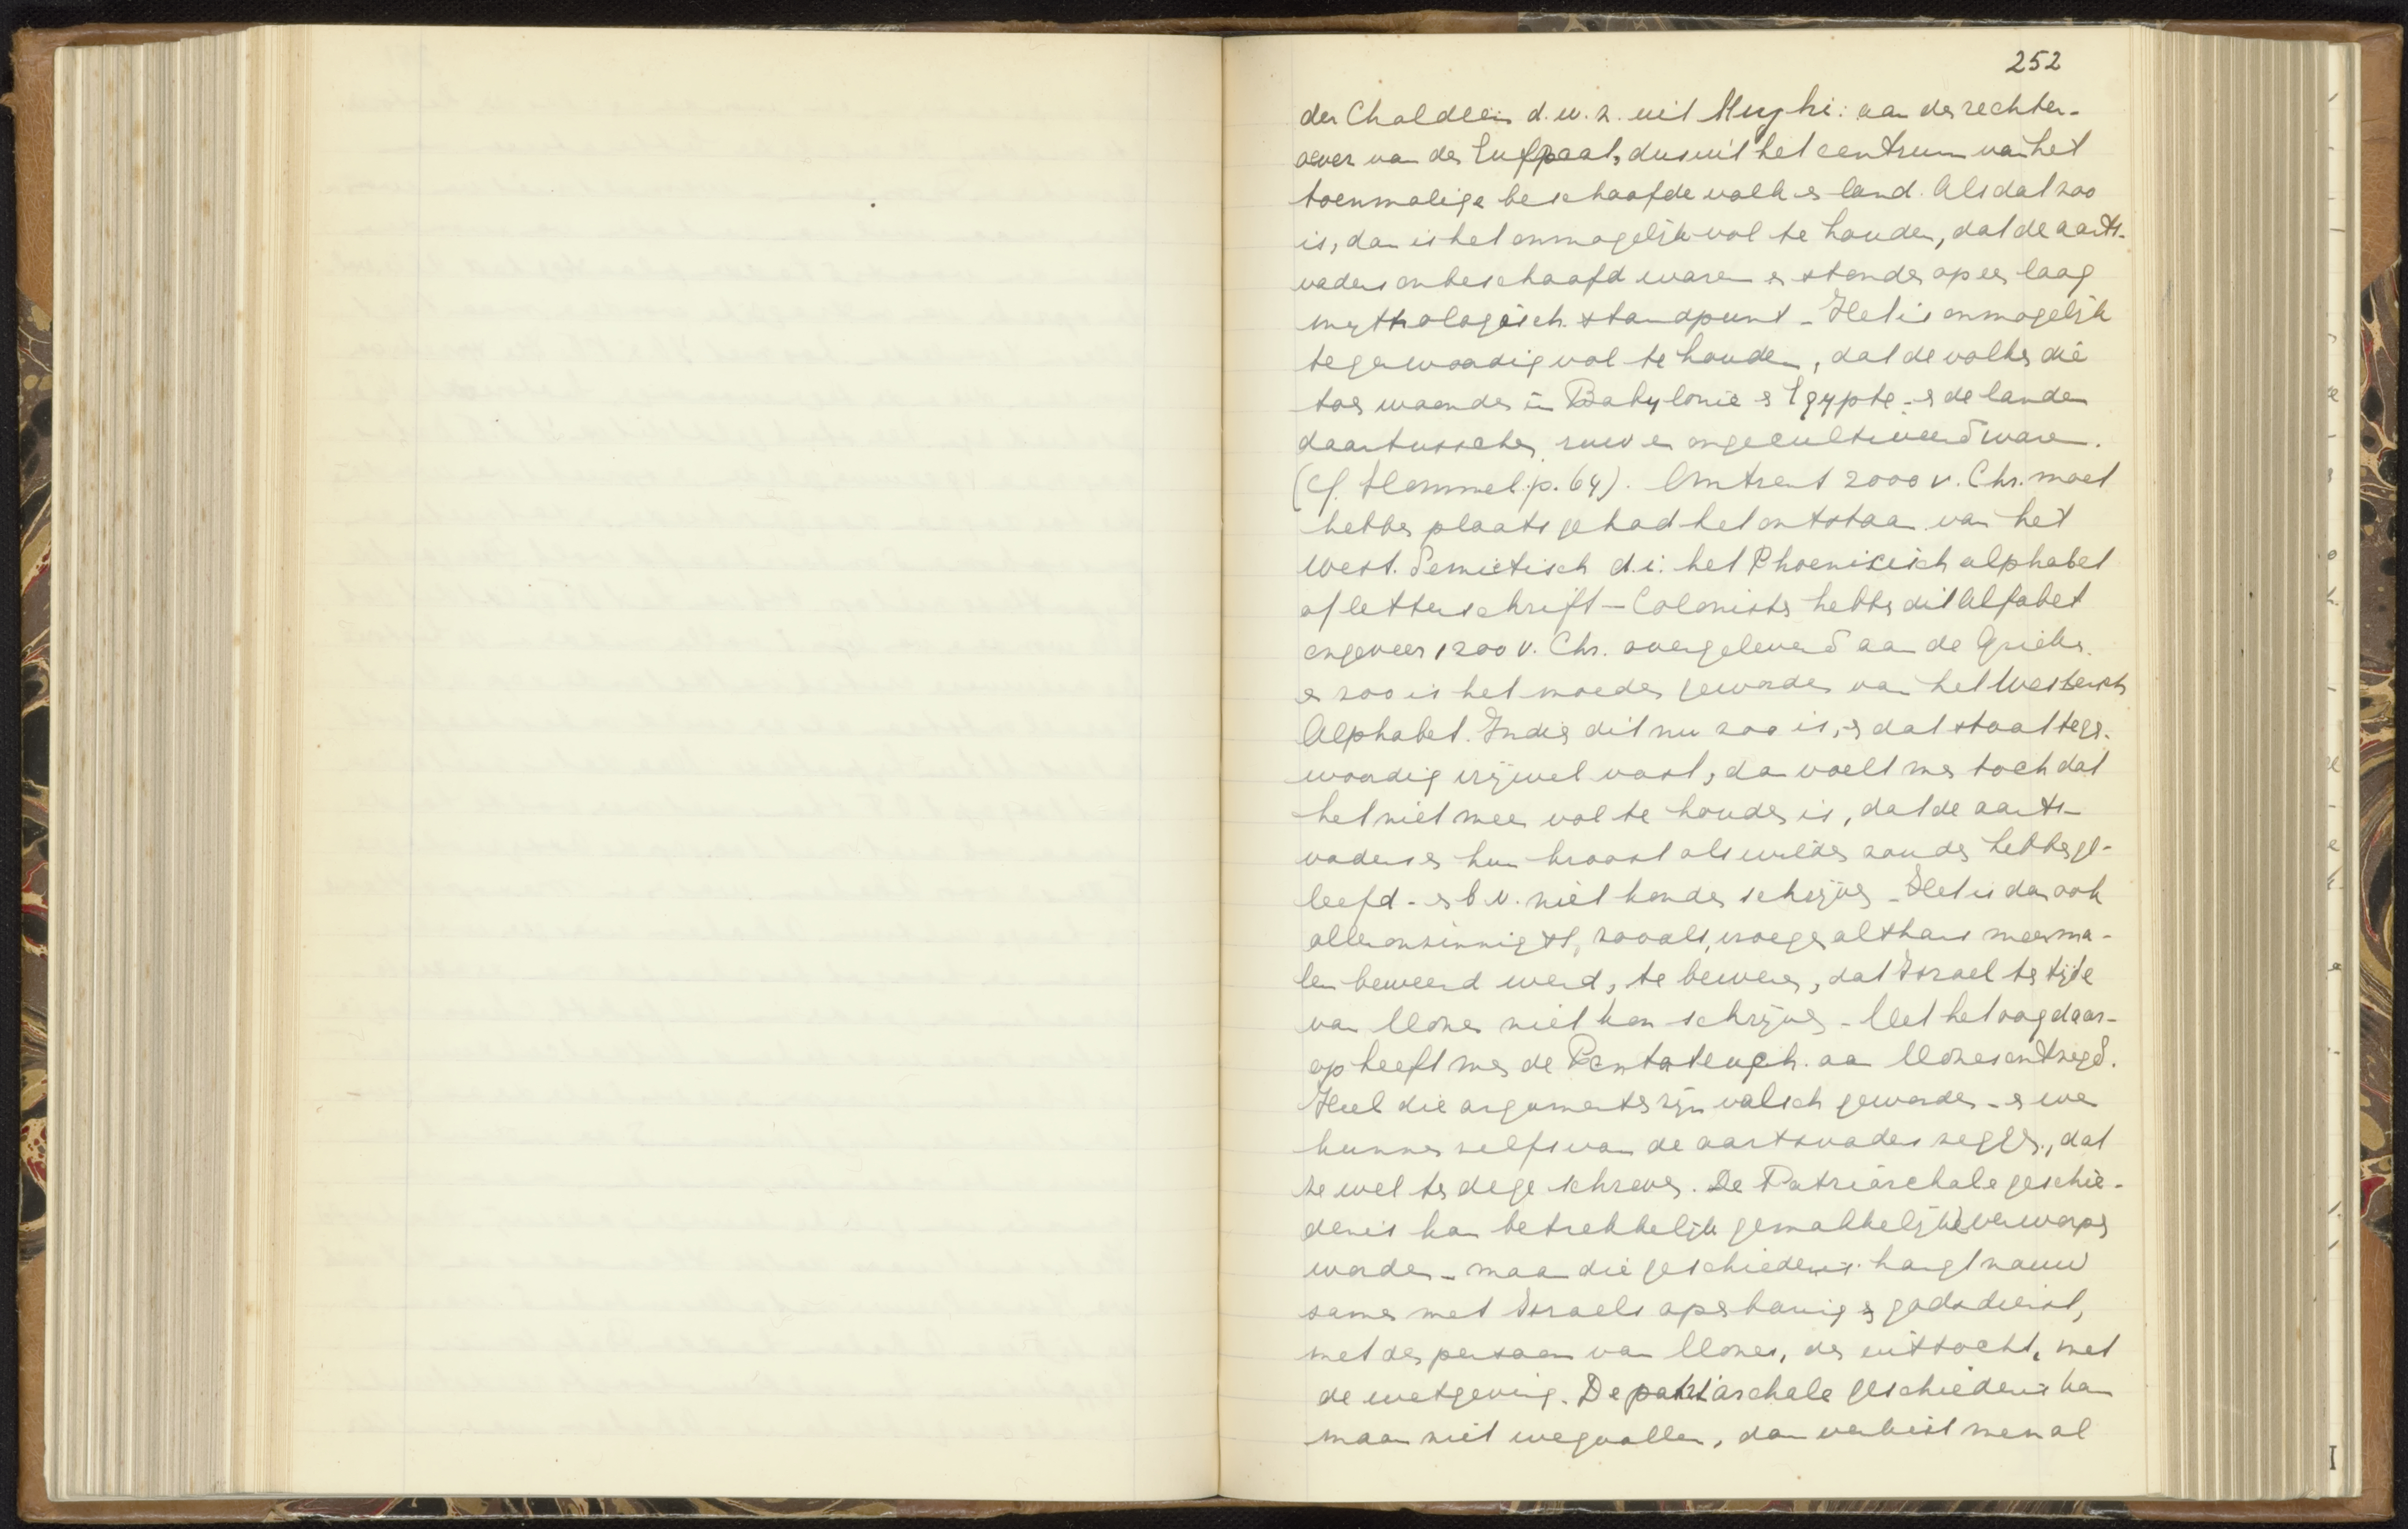 252
der Chaldeën d.w.z. uit Mughi: aan den rechter-
oever van den Eufraat, dus uit het centrum van het
toenmalige beschaafde volk en land. Als dat zoo
is, dan is het onmogelijk vol te houden, dat de aarts-
vaders onbeschaafd waren en stonden op een laag
mythologisch standpunt - Het is onmogelijk
tegenwoordig vol te houden, dat de volken die
toen woonden in Babylonië en Egypte - en de landen
daartusschen, ruw en ongecultiveerd waren.
(cf. Hommel. p. 64). Omtrent 2000 v. Chr. moet
hebben plaats gehad het ontstaan van het
West. Semietisch d.i. het Phoenicisch alphabet
of letterschrift - Colonisten hebben dit alfabet
ongeveer 1200 v. Chr. overgeleverd aan de Grieken.
en zoo is het moeder geworden van het Westersch
Alphabet. Indien dit nu zoo is, - en dat staat tegen-
woordig vrijwel vast, dan voelt men toch dat
het niet meer vol te houden is, dat de aarts-
vaders en hun kroost als wilden zouden hebben ge-
leefd - en b.v. niet konden schrijven - Het is dan ook
alleronzinnigst, zooals vroeger althans meerma-
len beweerd werd, te beweren, dat Israel ten tijde
van Mozes niet kon schrijven - Met het oog daar-
op heeft men de Pentateuch. aan Mozes ontzegd.
Heel die argumenten zijn valsch geworden - en we
kunnen zelfs van de aartsvaders zeggen, dat
ze wel ter dege schreven. De Patriarchale geschie-
denis kan betrekkelijk gemakkelijk verworpen
worden - maar die geschiedenis hangt nauw
samen met Israels openbaring en godsdienst,
met den persoon van Mozes, den uittocht, met
de wetgeving. De patriarchale geschiedenis kan
maar niet wegvallen, dan verliest men al